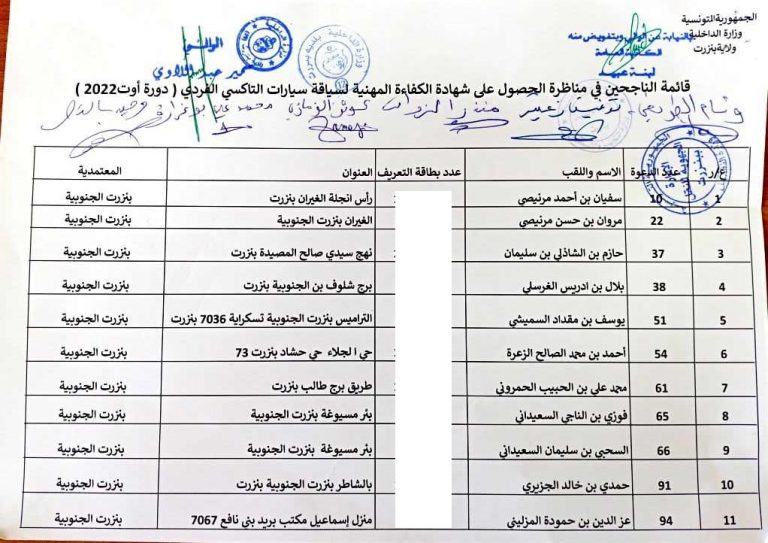 الجمهورية التونسية
وزارة الداخلية
ولاية بنزرت
بالنيابة عن الوالي وبتفويض منه
الكاتبة العامة
الوالي
سمير عبد اللاوي
قائمة الناجحين في مناظرة الحصول على شهادة الكفاءة المهنية لسياقة سيارات التاكسي الفردي ( دورة أوت2022 )
ع/ر عدد الدعوة الاسم واللقب عدد بطاقة التعريف العنوان المعتمدية
1 10 سفيان بن أحمد مرنيصي رأس انجلة الغيران بنزرت بنزرت الجنوبية
2 22 مروان بن حسن مرنيصي الغيران بنزرت الجنوبية بنزرت الجنوبية
3 37 حازم بن الشاذلي بن سليمان نهج سيدي صالح المصيدة بنزرت بنزرت الجنوبية
4 38 بلال بن ادريس الغرسلي برج شلوف بن الجنوبية بنزرت بنزرت الجنوبية
5 51 يوسف بن مقداد السميشي التراميس بنزرت الجنوبية تسكراية 7036 بنزرت بنزرت الجنوبية
6 54 أحمد بن محمد الصالح الزعرة حي الجلاء حي حشاد بنزرت 73 بنزرت الجنوبية
7 61 محمد علي بن الحبيب الحمروني طريق برج طالب بنزرت بنزرت الجنوبية
8 65 فوزي بن الناجي السعيداني بئر مسيوغة بنزرت الجنوبية بنزرت الجنوبية
9 66 السحبي بن سليمان السعيداني بئر مسيوغة بنزرت الجنوبية بنزرت الجنوبية
10 91 حمدي بن خالد الجزيري بالشاطر بنزرت الجنوبية بنزرت بنزرت الجنوبية
11 94 عز الدين بن حمودة المزليني منزل إسماعيل مكتب بريد بني نافع 7067 بنزرت الجنوبية